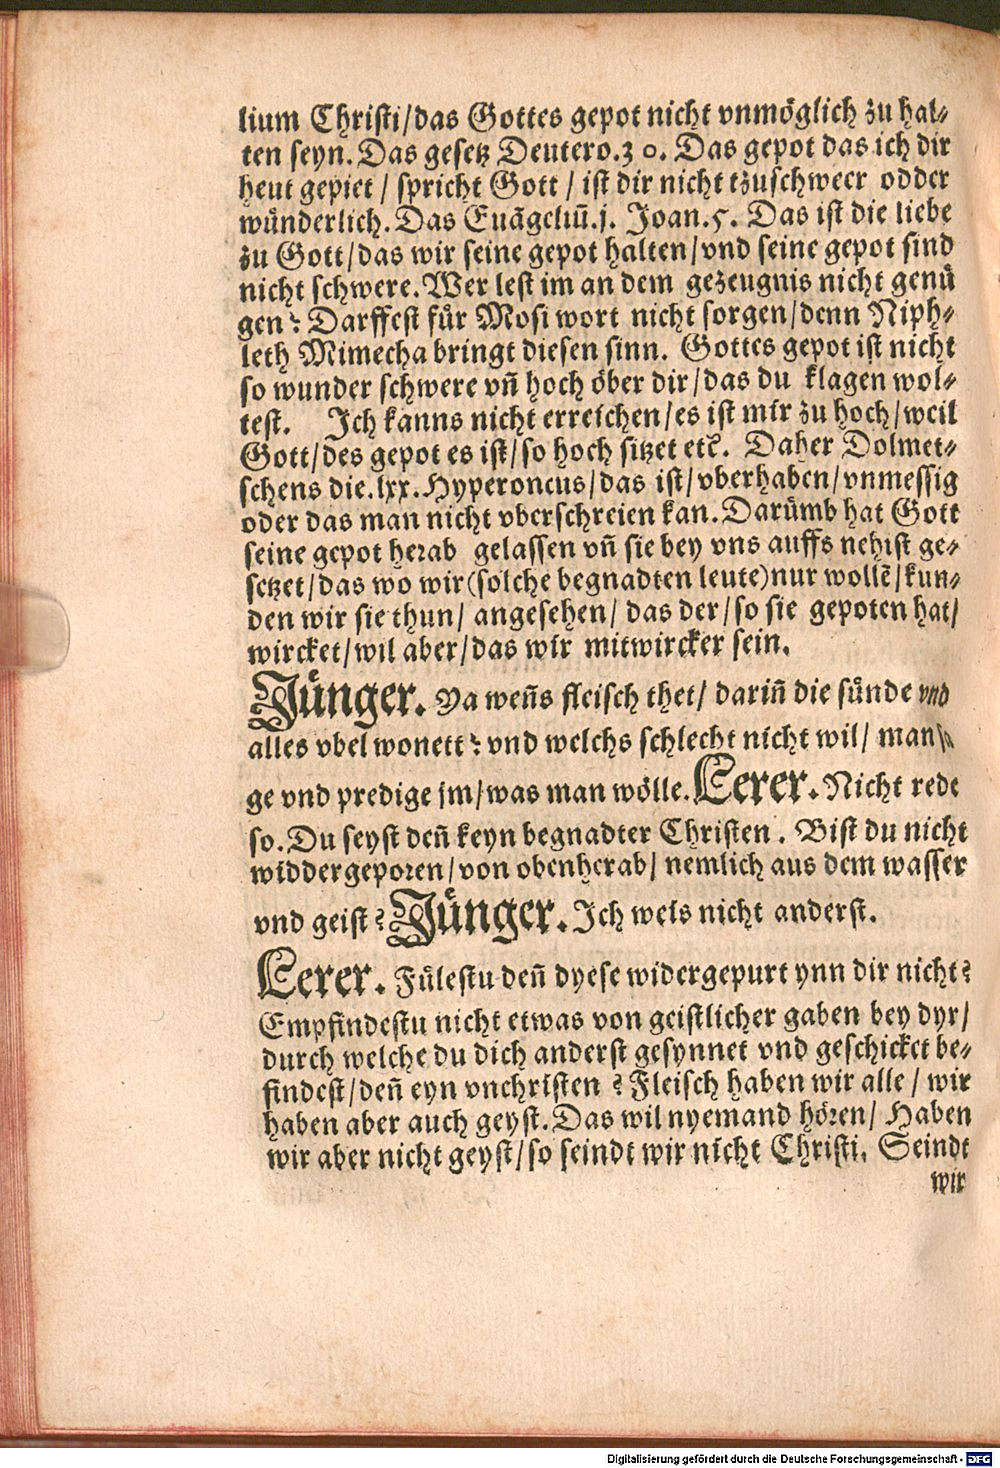 lium Christi/das Gottes gepot nicht vnmöglich zu hal-
ten seyn. Das gesetz Deutero.30. Das gepot das ich dir
heut gepiet / spricht Gott / ist dir nicht tzuschweer odder
wünderlich. Das Euãgeliũ.j. Joan.5. Das ist die liebe
zu Gott/das wir seine gepot halten/vnd seine gepot sind
nicht schwere. Wer lest im an dem gezeugnis nicht genü
gen? Darffest für Mosi wort nicht sorgen/denn Niph-
leth Mimecha bringt diesen sinn. Gottes gepot ist nicht
so wunder schwere vñ hoch öber dir/das du klagen wol-
test. Ich kanns nicht erreichen/es ist mir zu hoch/weil
Gott/des gepot es ist/so hoch sitzet etc̃. Daher Dolmet-
schens die.lxx.Hyperoncus/das ist/vberhaben/vnmessig
oder das man nicht vberschreien kan. Darümb hat Gott
seine gepot herab gelassen vñ sie bey vns auffs nehist ge-
setzet/das wo wir(solche begnadten leute)nur wollẽ/kun-
den wir sie thun/ angesehen/ das der/so sie gepoten hat/
wircket/wil aber/das wir mitwircker sein.
Jünger. Ya weñs fleisch thet/ dariñ die sünde vnd
alles vbel wonett? vnd welchs schlecht nicht wil/ man sa
ge vnd predige jm/was man wölle. Lerer. Nicht rede
so. Du seyst deñ keyn begnadter Christen. Bist du nicht
widdergeporen/von obenherab/ nemlich aus dem wasser
vnd geist? Jünger. Ich weis nicht anderst.
Lerer. Fülestu deñ dyese widergepurt ynn dir nicht?
Empfindestu nicht etwas von geistlicher gaben bey dyr/
durch welche du dich anderst gesynnet vnd geschicket be-
findest/deñ eyn vnchristen? Fleisch haben wir alle/ wir
haben aber auch geyst. Das wil nyemand hören/ Haben
wir aber nicht geyst/so seindt wir nicht Christi. Seindt
wir
Digitalisierung gefördert durch die Deutsche Forschungsgemeinschaft - DFG